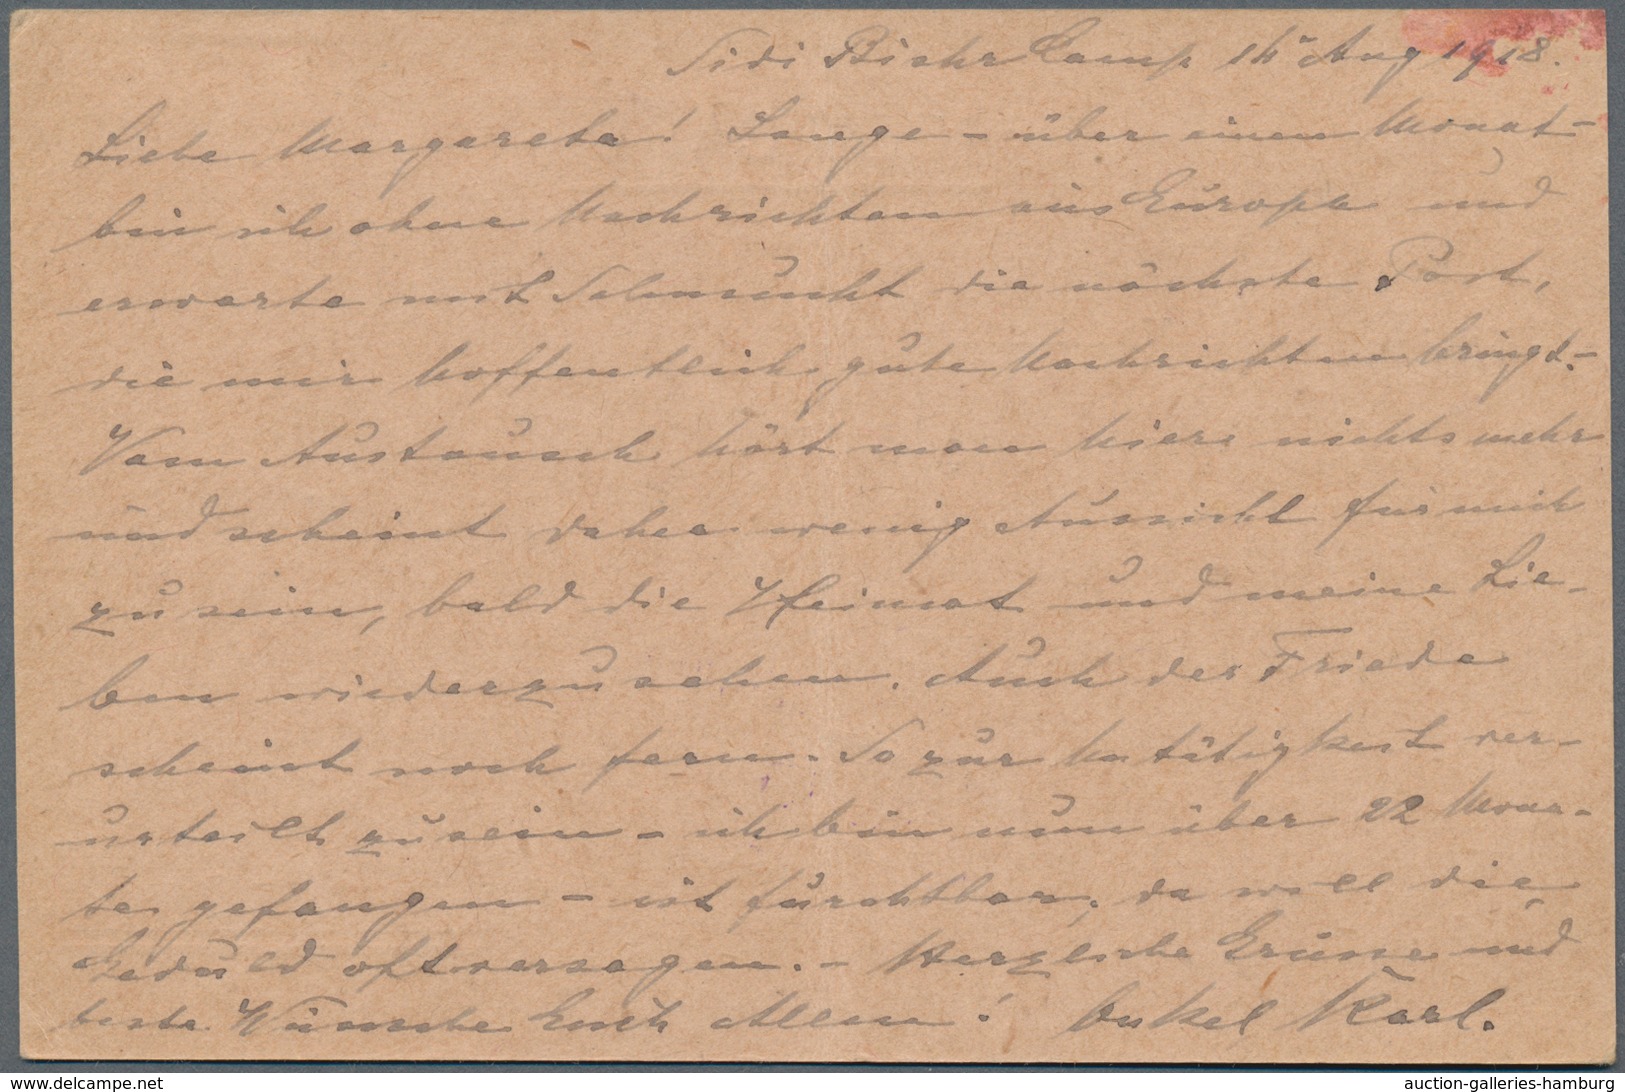 Sidi Bishr Camp 14 Aug 1918.
Liebe Margareta! Lange - über einen Monat -
bin ich ohne Nachrichten aus Europa und
erwarte mit Sehnsucht die nächste Post,
die mir hoffentlich gute Nachrichten bringt. -
Vom Austausch hört man hier nichts mehr
und scheint daher wenig Aussicht für mich
zu sein, bald die Heimat und meine Lie-
ben wiederzusehen. Auch der Friede
scheint noch fern. So zur Untätigkeit ver-
urteilt zu sein - ich bin nun über 22 Mona-
te gefangen - ist furchtbar, da will die
Geduld oft versagen. - Herzliche Grüsse und
beste Wünsche Euch Allen! Onkel Karl.
www.delcampe.net
auction-galleries-hamburg